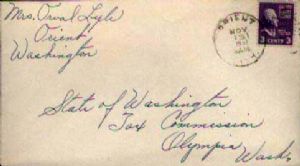 Mrs. Orval Lyle
Orient
Washington
ORIENT
NOV
3 CENTS 3
State of Washington
Tax Commission
Olympia
Wash.